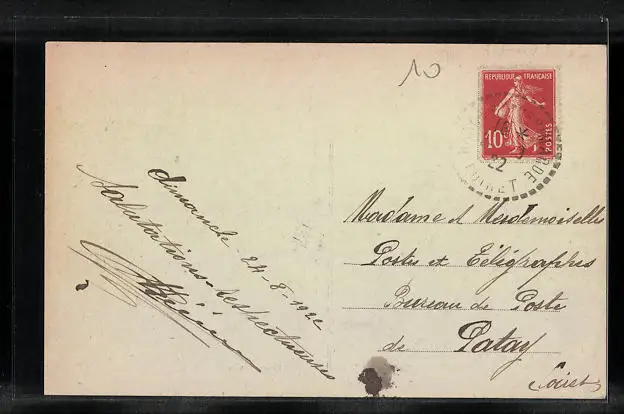 10
REPUBLIQUE FRANÇAISE
10
POSTES
22
LOIRET
dimanche 24-8-1922
Salutations respectueuses
Madame et Mesdemoiselles
Postes et Télégraphes
Bureau de Poste
de Patay
Loiret